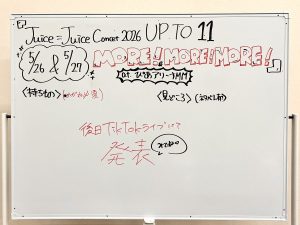 Juice=Juice Concert 2026 UP TO 11
5/26 & 5/27
MORE! MORE! MORE!
at. ぴあアリーナMM
<持ちもの>
<見どころ>
後日TikTokライブにて
発表